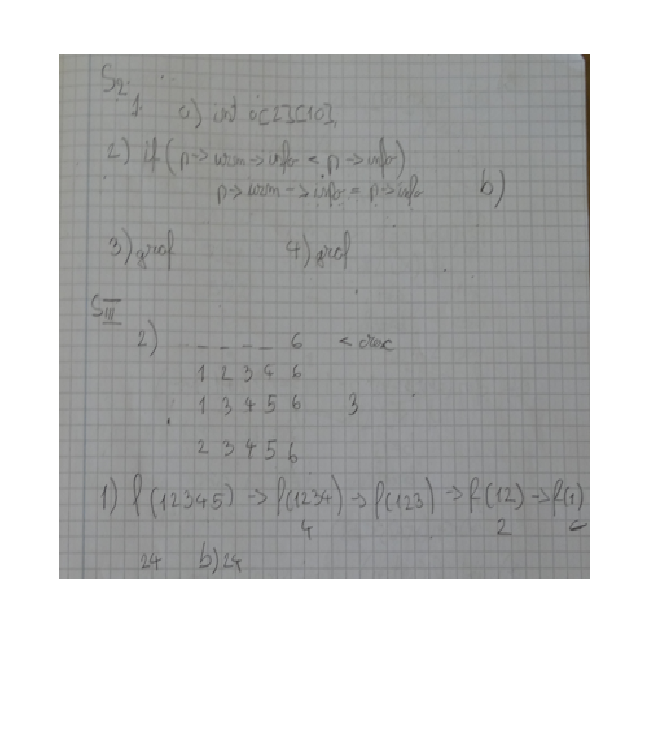 S2
1. a) int a[2][10],
2) if (p->urm->info < p->info)
p->urm->info = p->info b)
3) graf 4) graf
SIII
2) _ _ _ _ 6 <
1 2 3 4 6
1 3 4 5 6 3
2 3 4 5 6
1) f(12345) -> f(1234) -> f(123) -> f(12) -> f(1)
4 2
24 b) 24